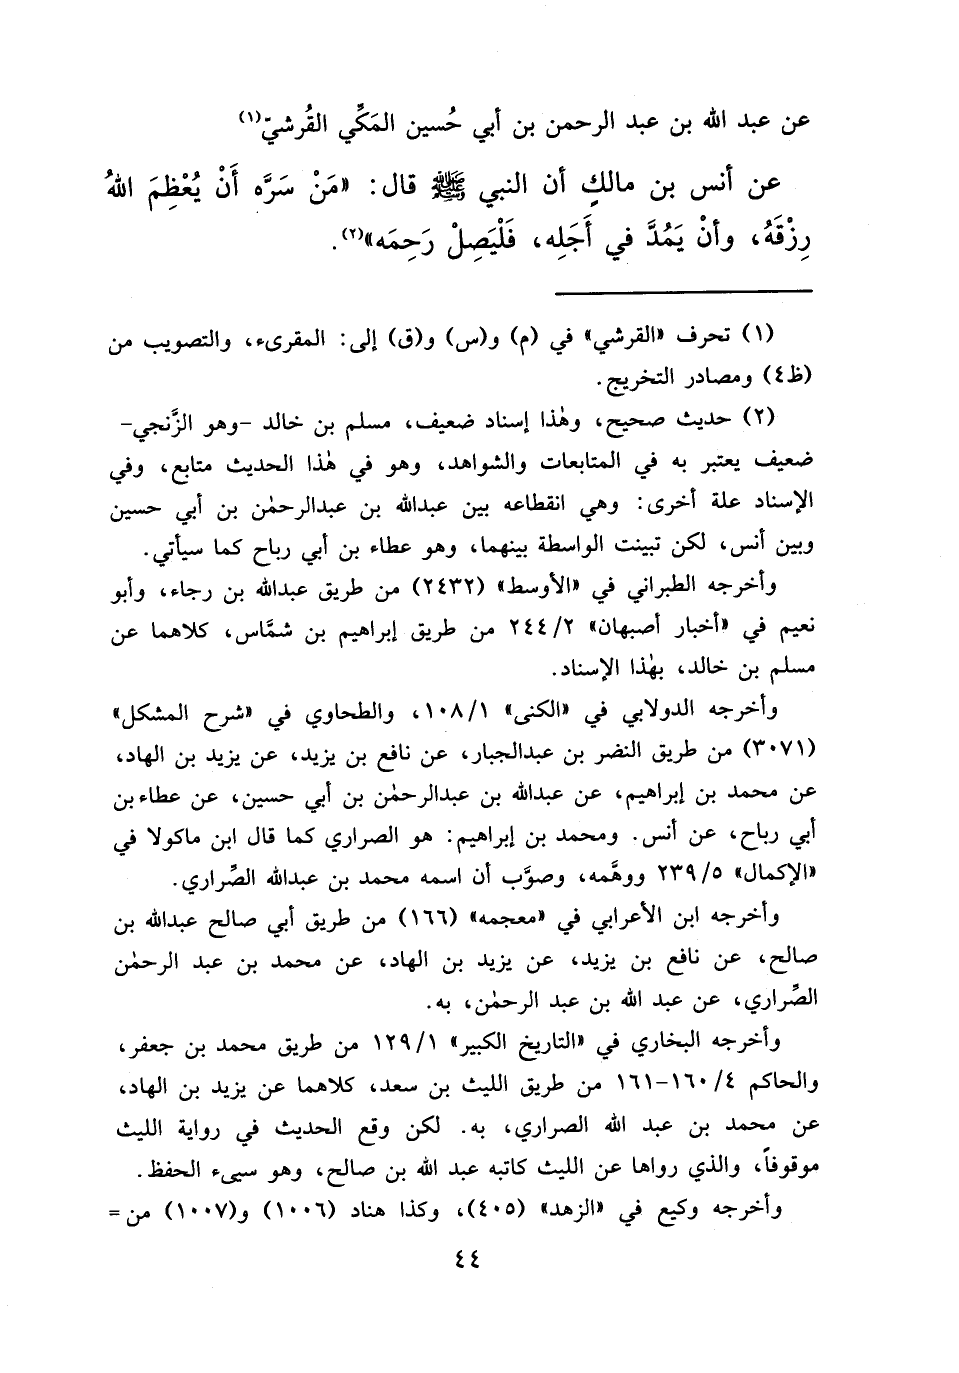 عن عبد الله بن عبد الرحمن بن أبي حُسين المَكِّي القُرشيّ(١)
عن أنس بن مالكٍ أن النبي ﷺ قال: «مَنْ سَرَّه أَنْ يُعْظِمَ اللهُ
رِزْقَهُ، وأنْ يَمُدَّ في أَجَلِه، فَلْيَصِلْ رَحِمَه»(٢).
(١) تحرف «القرشي» في (م) و(س) و(ق) إلى: المقرىء، والتصويب من
(ظ٤) ومصادر التخريج.
(٢) حديث صحيح، وهٰذا إسناد ضعيف، مسلم بن خالد -وهو الزَّنجي-
ضعيف يعتبر به في المتابعات والشواهد، وهو في هٰذا الحديث متابع، وفي
الإسناد علة أخرى: وهي انقطاعه بين عبدالله بن عبدالرحمٰن بن أبي حسين
وبين أنس، لكن تبينت الواسطة بينهما، وهو عطاء بن أبي رباح كما سيأتي.
وأخرجه الطبراني في «الأوسط» (٢٤٣٢) من طريق عبدالله بن رجاء، وأبو
نعيم في «أخبار أصبهان» ٢٤٤/٢ من طريق إبراهيم بن شمَّاس، كلاهما عن
مسلم بن خالد، بهٰذا الإسناد.
وأخرجه الدولابي في «الكنى» ١٠٨/١، والطحاوي في «شرح المشكل»
(٣٠٧١) من طريق النضر بن عبدالجبار، عن نافع بن يزيد، عن يزيد بن الهاد،
عن محمد بن إبراهيم، عن عبدالله بن عبدالرحمٰن بن أبي حسين، عن عطاء بن
أبي رباح، عن أنس. ومحمد بن إبراهيم: هو الصراري كما قال ابن ماكولا في
«الإكمال» ٢٣٩/٥ ووهَّمه، وصوَّب أن اسمه محمد بن عبدالله الصِّراري.
وأخرجه ابن الأعرابي في «معجمه» (١٦٦) من طريق أبي صالح عبدالله بن
صالح، عن نافع بن يزيد، عن يزيد بن الهاد، عن محمد بن عبد الرحمٰن
الصِّراري، عن عبد الله بن عبد الرحمٰن، به.
وأخرجه البخاري في «التاريخ الكبير» ١٢٩/١ من طريق محمد بن جعفر،
والحاكم ١٦٠/٤-١٦١ من طريق الليث بن سعد، كلاهما عن يزيد بن الهاد،
عن محمد بن عبد الله الصراري، به. لكن وقع الحديث في رواية الليث
موقوفاً، والذي رواها عن الليث كاتبه عبد الله بن صالح، وهو سيىء الحفظ.
وأخرجه وكيع في «الزهد» (٤٠٥)، وكذا هناد (١٠٠٦) و(١٠٠٧) من =
٤٤